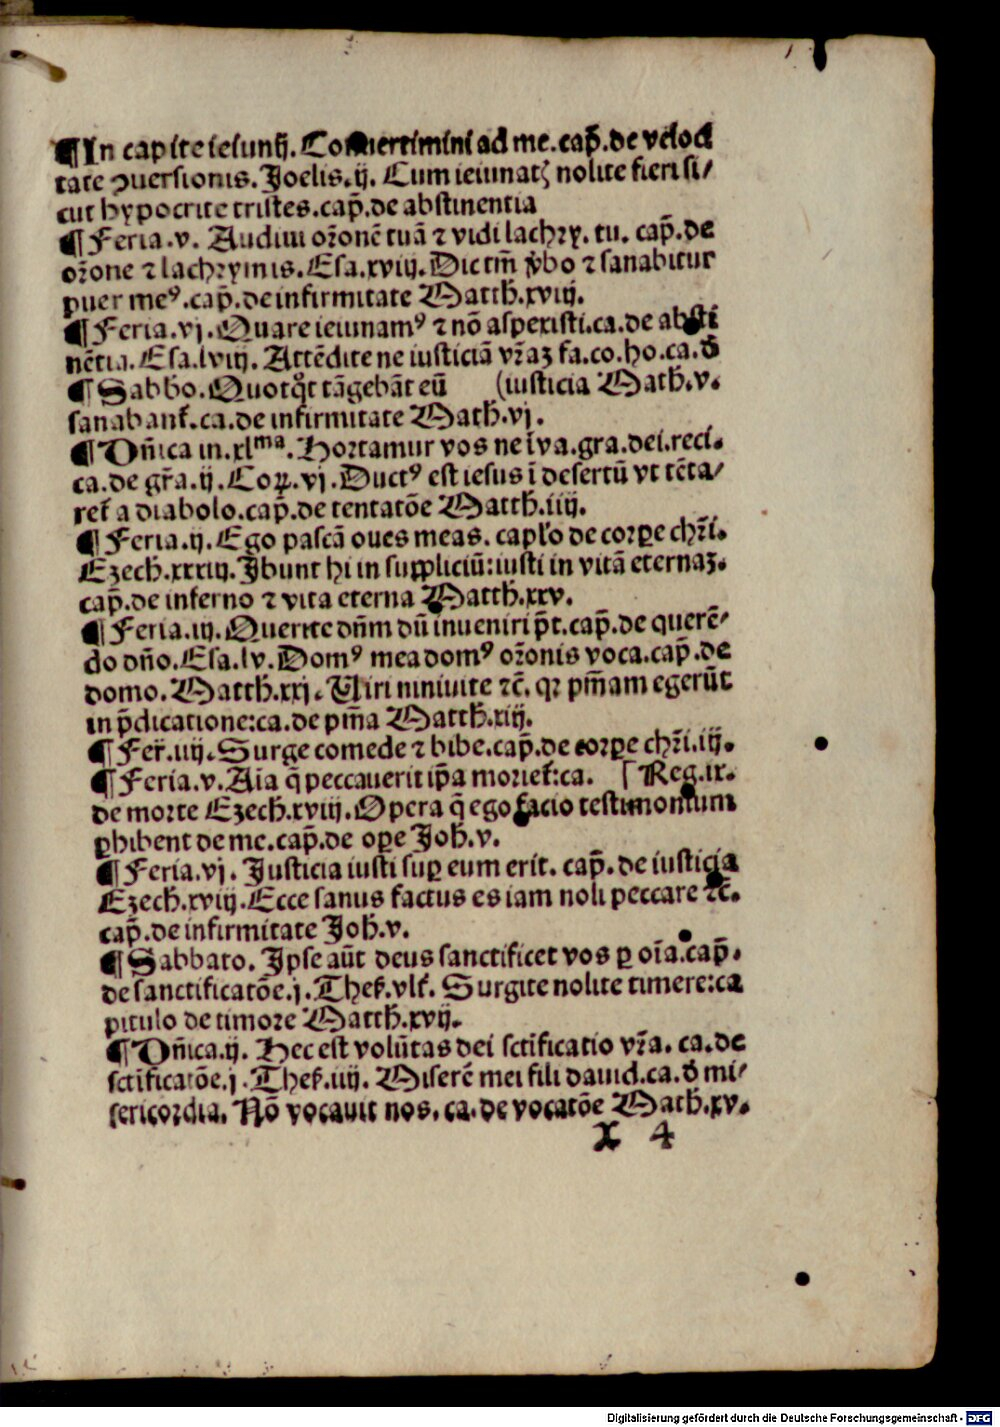 ¶In capite ieiunij. Conuertimini ad me.cap̄.de veloci
tate ꝯuersionis.Joelis.ij. Cum ieiunatꝭ nolite fieri si/
cut hypocrite tristes.cap̄.de abstinentia
¶Feria.v. Audiui or̄onē tuā ⁊ vidi lachry. tu. cap̄.de
or̄one ⁊ lachrymis.Esa.xviij.Dic tm̄ v̄bo ⁊ sanabitur
puer meꝰ.cap̄.de infirmitate Matth̄.xviij.
¶Feria.vj.Quare ieiunamꝰ ⁊ nō aspexisti.ca.de absti
nētia.Esa.lviij. Attēdite ne iusticiā vr̄aꝫ fa.co.ho.ca.ď
¶Sabbo.Quotqͦt tāgebāt eū (iusticia Math̄.v.
sanabant̄.ca.de infirmitate Math̄.vj.
¶Dn̄ica in.xlᵐᵃ. Hortamur vos ne ī va.gra.dei.reci.
ca.de gr̄a.ij.Coꝝ.vj.Ductꝰ est iesus ī desertū vt tēta/
ret̄ a diabolo.cap̄.de tentatōe Matth̄.iiij.
¶Feria.ij.Ego pascā oues meas. capl'o de corꝑe chr̄i.
Ezech̄.xxxiij.Jbunt hi in suppliciū:iusti in vitā eternaꝫ.
cap̄.de inferno ⁊ vita eterna Matth̄.xxv.
¶Feria.iij.Querite dn̄m dū inueniri p̄t.cap̄.de querē/
do dn̄o.Esa.lv.Domꝰ mea domꝰ or̄onis voca.cap̄.de
domo.Matth̄.xxj.Uiri niniuite ⁊c̄. qꝛ pm̄am egerūt
in p̄dicatione:ca.de pm̄a Matth̄.xij.
¶Fer̄.iiij.Surge comede ⁊ bibe.cap̄.de corꝑe chr̄i.iij.
¶Feria.v.Aīa q̄ peccauerit ip̄a moriet̄:ca. [Reg.ix.
de morte Ezech̄.xviij.Opera q̄ ego facio testimonium
ꝑhibent de me.cap̄.de oꝑe Joh̄.v.
¶Feria.vj. Justicia iusti suꝑ eum erit. cap̄.de iusticia
Ezech̄.xviij.Ecce sanus factus es iam noli peccare ⁊c̄.
cap̄.de infirmitate Joh̄.v.
¶Sabbato. Jpse aūt deus sanctificet vos ꝑ oīa.cap̄.
de sanctificatōe.j.Thes̄.vlt̄. Surgite nolite timere:ca
pitulo de timore Matth̄.xvij.
¶Dn̄ica.ij. Hec est volūtas dei sctīficatio vr̄a. ca.de
sctīficatōe.j.Thes̄.iiij. Miserē mei fili dauid.ca.ď mi/
sericordia. Nō vocauit nos. ca.de vocatōe Math̄.xv.
X 4
Digitalisierung gefördert durch die Deutsche Forschungsgemeinschaft - DFG